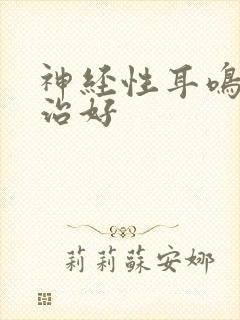 神经性耳鸣
治好
莉莉蘇安娜